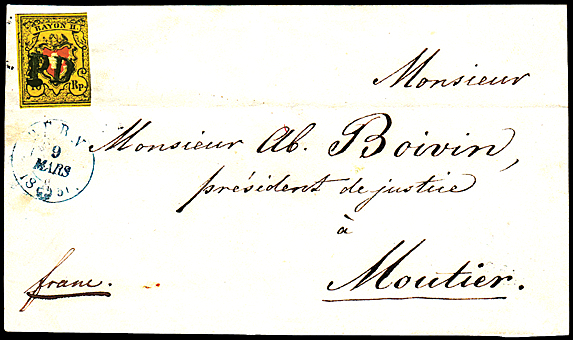 RAYON II.
PD
10 Rp.
Monsieur
9
MARS
Monsieur Ab. Boivin,
président de justice
à
Moutier.
franc.